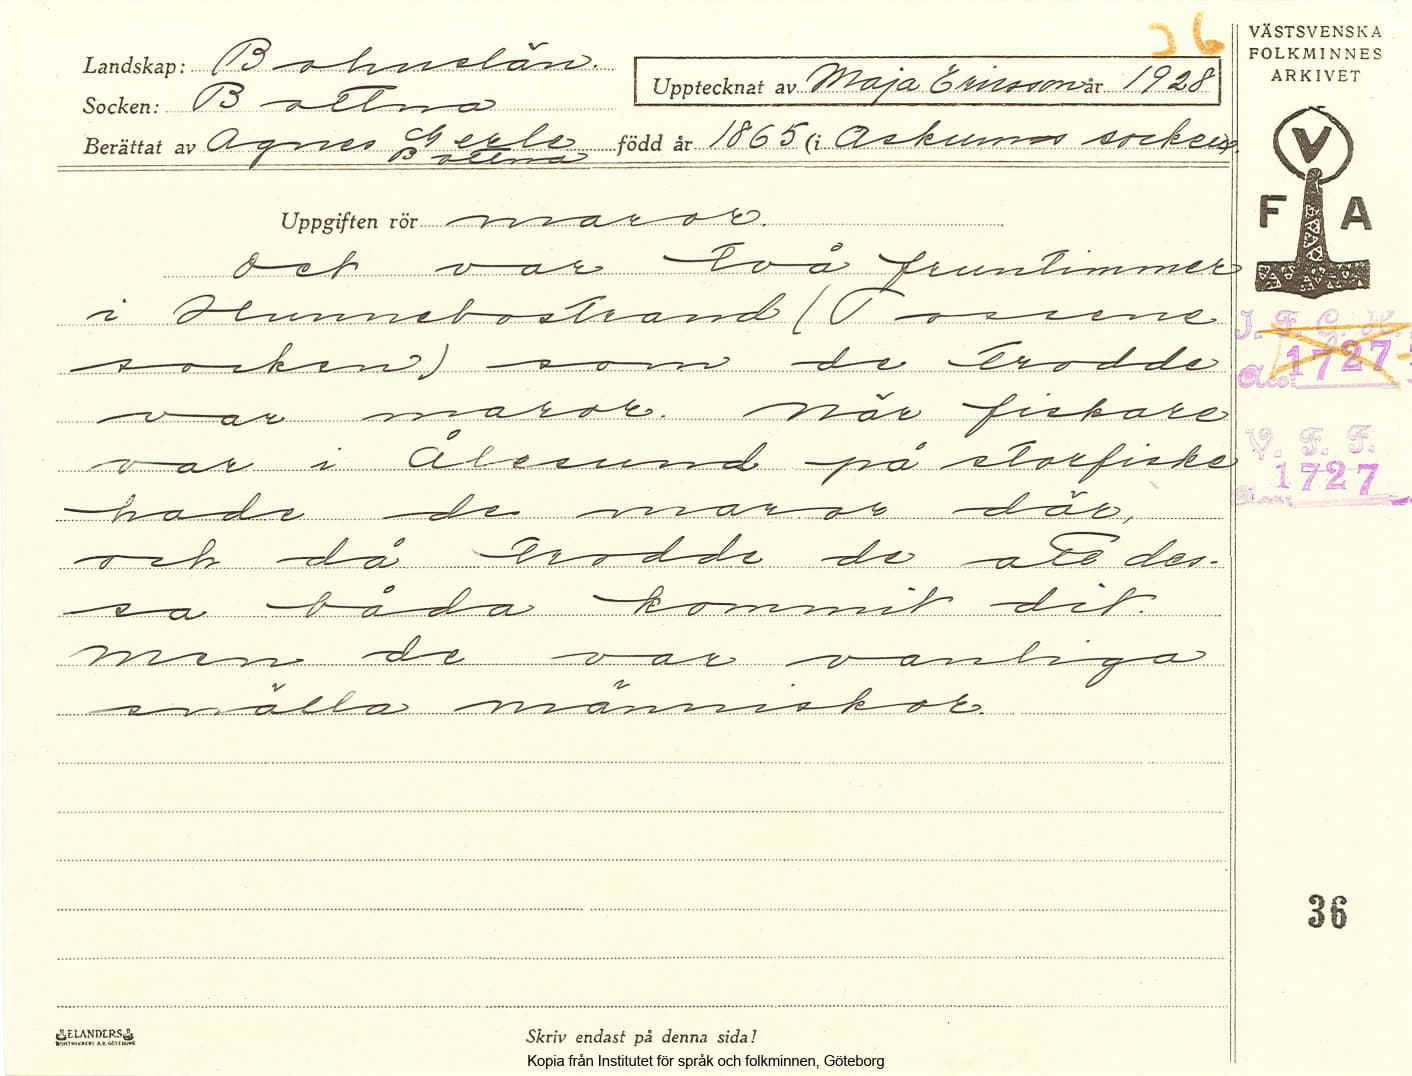 26
VÄSTSVENSKA
FOLKMINNES
ARKIVET
Landskap: Bohuslän.
Upptecknat av Maja Ericsson år 1928
Socken: Bottna
Berättat av Agnes Gerle född år 1865 (i Askums socken).
Bottna
V
F A
Uppgiften rör maror.
Det var två fruntimmer
i Hunnebostrand (Tossene
socken) som de trodde
var maror. När fiskare
var i Ålesund på storfiske
hade de maror där,
och då trodde de att des-
sa båda kommit dit.
Men de var vanliga
snälla människor.
I. F. G. H.
Acc. 1727
V. F. F.
Acc. 1727
36
ELANDERS
BOKTRYCKERI A.B. GÖTEBORG
Skriv endast på denna sida!
Kopia från Institutet för språk och folkminnen, Göteborg